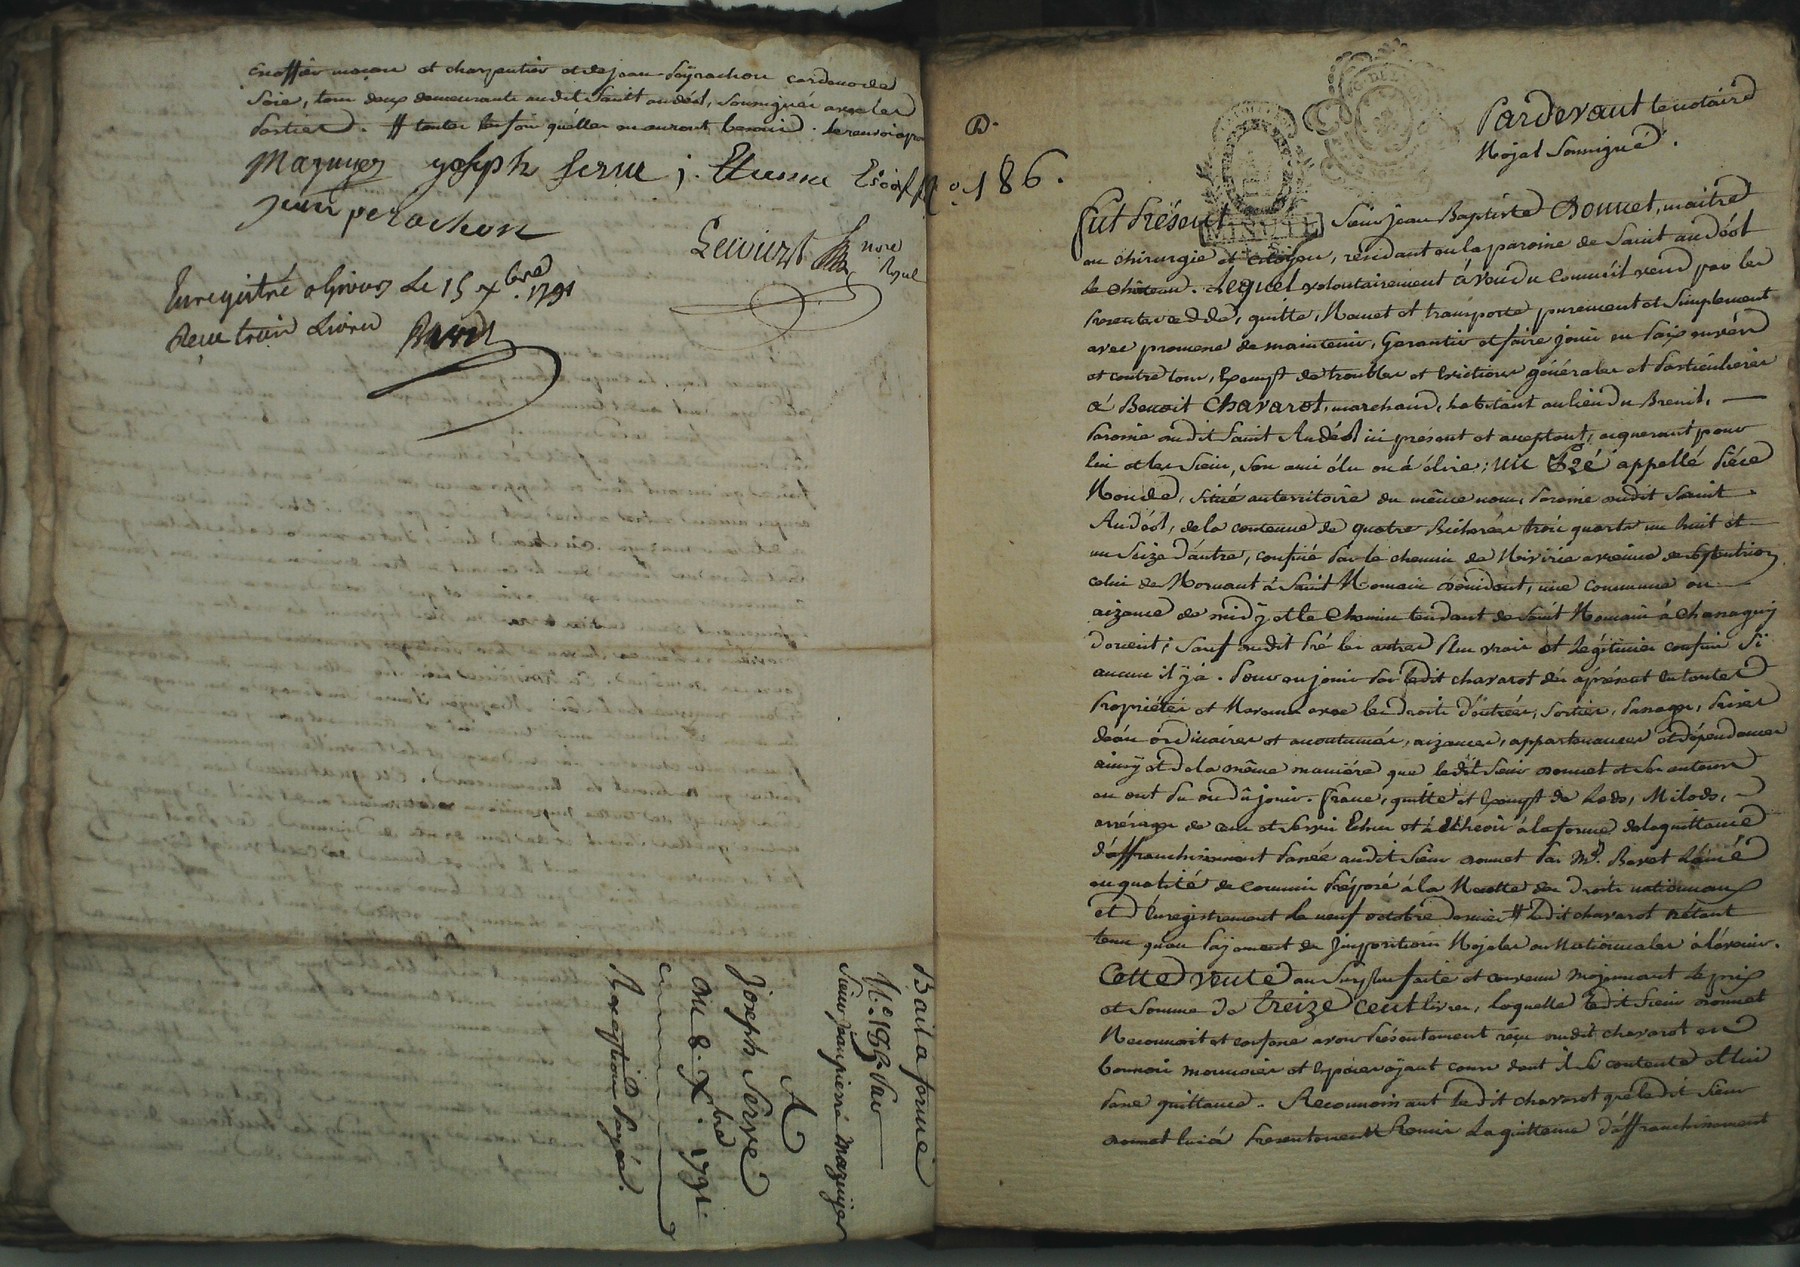 maçon et charpentier et de jean peÿrachon cordeur de
Soie, tous deux demeurants audit Saint andéol, Soussignés avec les
Parties. # toutes les fois qu'elles en auront besoin.
Mazuyer joseph Serve j. Etienne
jean perachon
nore Royal
Enregistré a Givors Le 15 Xbre 1791
Reçu trois Livres
Bail a ferme
N.o 185 Par
Sieur jean pierre Mazuyer
A
Joseph Serve
Du 8. Xbre 1791.
D.
No. 186.
Pardevant le notaire
Royal Soussigné.
MINUTE
fut Présent Sieur jean Baptiste Bonnet, maitre
en chirurgie et citoyen, résidant en la paroisse de Saint andéol
le Château. Lequel volontairement a vendu comme il vend par les
presentes cedde, quitte, Remet et transporte purement et Simplement
avec promesse de maintenir, Garantir et faire jouir en Paix envers
et contre tous, Exempt de troubles et évictions générales et Particulieres
à Benoit Chavarot, marchand, habitant au lieu du Breuil,
Paroisse dudit Saint Andéol ici présent et acceptant, acquerant pour
lui et les Siens, Son ami élu ou à élire; un Pré appellé Piéce
Ronde, Situé au territoire du même nom, Paroisse dudit Saint
Andéol, de la contenue de quatre Bicherées trois quarts un huit et
un Seize d'autre, confiné Par le chemin de Riverie a vienne de Septentrion
celui de Mornant à Saint Romain d'occident, une commune ou
aizance de midÿ et le Chemin tendant de Saint Romain à Chassagny
d'orient; Sauf dudit Pré les autres Plus vrais et Légitimes confins Si
aucun il ÿ a. Pour en jouir Par ledit chavarot dès àprésent en toutes
Propriétés et Revenus avec les droits d'entrées, Sorties, Passages, Prises
d'eau ordinaires et accoutumés, aizances, appartenances et dépendances
ainsÿ et de la même maniére que ledit Sieur Bonnet et Ses auteurs
en ont Pu ou dû jouir. franc, quitte et Exempt de Lods, Milods,
arrérages de cens et Servis Echus et à Echeoir à la forme de la quittance
d'affranchissement Passée audit Sieur Bonnet Par Mr. Bovet Lainé
en qualité de commis Préposé à la Recette des Droits nationaux
et d'Enregistrement Le neuf octobre dernier # Ledit chavarot n'étant
tenu qu'au Paÿement des jmpositions Royales ou Nationales à l'avenir.
Cette vente au Surplus faite et convenu moÿennant Le prix
et Somme de treize cent Livres, laquelle Ledit Sieur Bonnet
Reconnoit et confesse avoir Présentement reçu dudit chavarot en
bonnes monnoies et Espèces aÿant cours dont il Se contente et lui
Passe quittance. Reconnoissant Ledit chavarot que ledit Sieur
Bonnet lui a Presentement Remis La quittance d'affranchissement